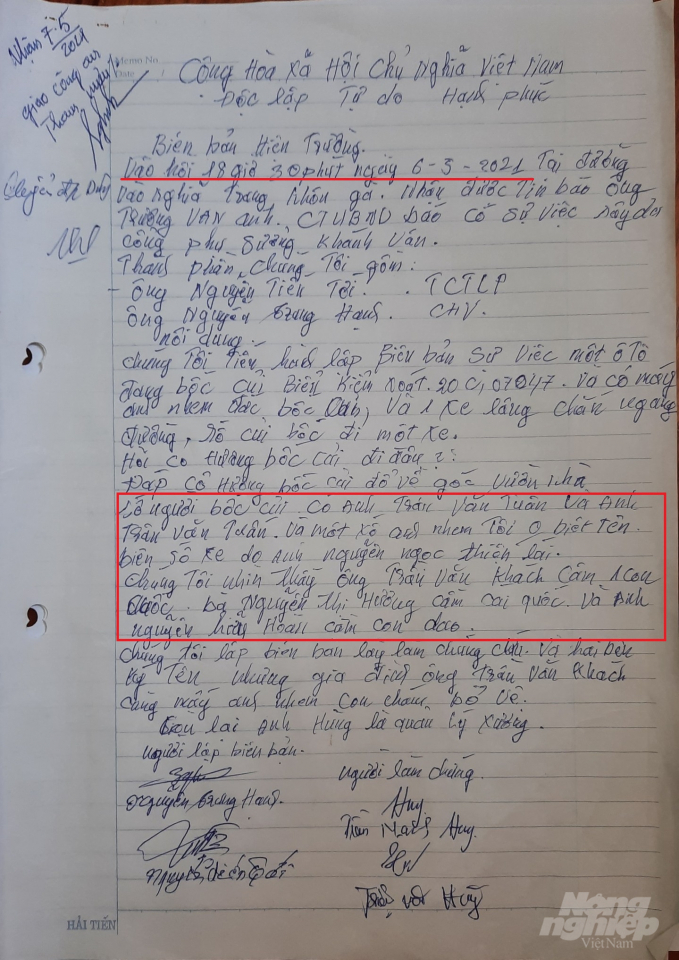 Nhận 7.5
2021
giao công an
Memo No.
Date
Cộng Hòa Xã Hội Chủ Nghĩa Việt Nam
Độc lập Tự do Hạnh phúc
Biên bản Hiện Trường.
Vào hồi 18 giờ 30 phút ngày 6-3-2021 Tại đường
vào Nghĩa trang Nhận được Tin báo ông
Trương Văn anh. CTUBND báo có sự việc xảy ra
cổng phụ xưởng Khánh Vân.
Thành phần chúng Tôi gồm:
- ông Nguyễn Tiến Tới. TCTLP
ông Nguyễn trung Hạnh. CHV.
nội dung.
chúng Tôi Tiến hành lập Biên bản Sự Việc một ô Tô
đang bốc củi Biển Kiểm Xoát. 20C, 07047. Và có mấy
anh nhem đang bốc Và 1 xe chắn ngang
đường, số củi bốc đi một xe.
Hỏi cô Hương bốc củi đi đâu?:
Đáp cô Hương bốc củi đổ về góc vườn nhà
Số người bốc củi có Anh Trần Văn Tuân Và Anh
Trần Văn Tuấn. Và một xố anh nhem Tôi o biết tên.
biển số xe do Anh nguyễn ngọc thiên lái.
chúng Tôi nhìn thấy ông Trần Văn Khách cầm 1 con
bà Nguyễn Thị Hương cầm cái quốc. Và Anh
nguyễn Hoan cầm con dao.
chúng tôi lập biên bản lấy làm chứng cứ. Và hai bên
ký Tên nhưng gia đình ông Trần Văn Khách
cùng mấy anh nhem bỏ về.
Còn lại Anh Hùng là quản lý xưởng.
người lập biên bản.
người làm chứng.
nguyễn trung Hạnh.
Huy.
Huy.
Nguyễn Tiến Tới
HẢI TIẾN
Nông
nghiệp
Việt Nam